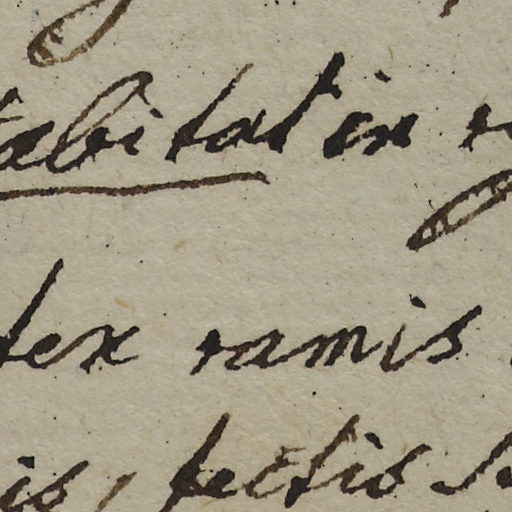 abitat in
tex ramis
is, tectis